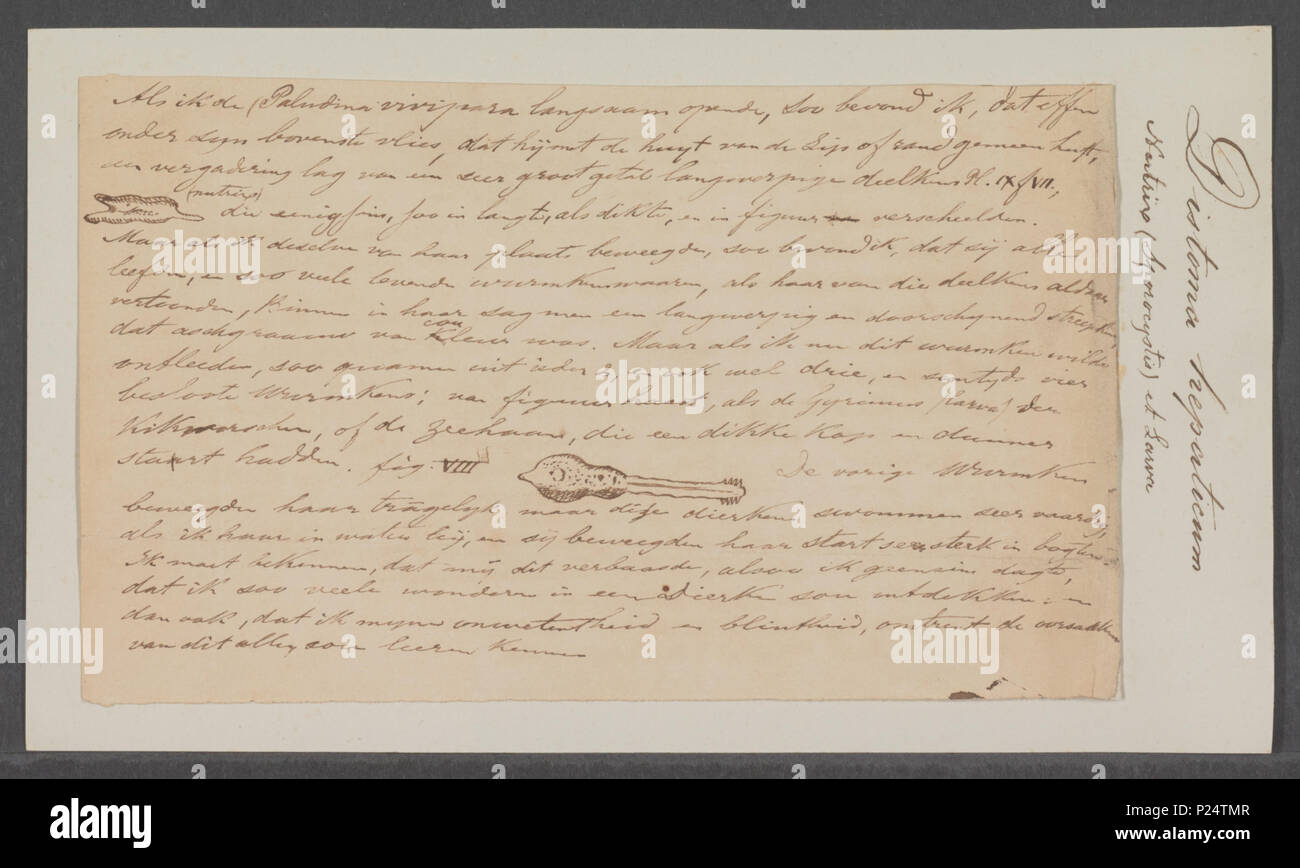 Als ik de (Paludina vivipara langsaam opende, soo bevond ik, dat effen
onder syn bovenste vlies, dat hij met de huyt van de Lip of rand gemeen heeft,
een vergadering lag van een seer groot getal langwerpige deelkens Pl. IX f VII.,
(nutrix)
die eenigsins, soo in langte, als dikte, en in figuur verscheelden.
Maar als ik deselve van haar plaats beweegde, soo bevond ik, dat sij alle
leefden, en soo veele levende wurmkens waaren, als haar van die deelkens aldaar
vertoonden, Binnen in haar sag men een langwerpig en doorschynend streepken,
dat aschgraauw van couleur was. Maar als ik nu dit wurmken wilde
ontleeden, soo quamen uit ieder 2, en ook wel drie, en somtyds vier
beslote Wurmkens; van figuur, als de Gyrinus (larva) der
Kikvorschen, of de zeehaan, die een dikke kop en dunner
staart hadden. fig. VIII De vorige Wurmken
beweegden haar tragelyk maar dese dierkens swommen seer vaardig,
als ik haar in water leij, en sij beweegden haar start seer sterk in bogten.
Ik moet bekennen, dat mij dit verbaasde, alsoo ik geensins dagte,
dat ik soo veele wonderen in een Dierke sou ontdekken: en
dan ook, dat ik myne onwetentheid en blintheid, omtrent de oorsaaken
van dit alles, sou leeren kennen
Distoma hepaticum
Nutrix (Sporocystis) et Larva
alamy
Image ID: P24TMR
www.alamy.com